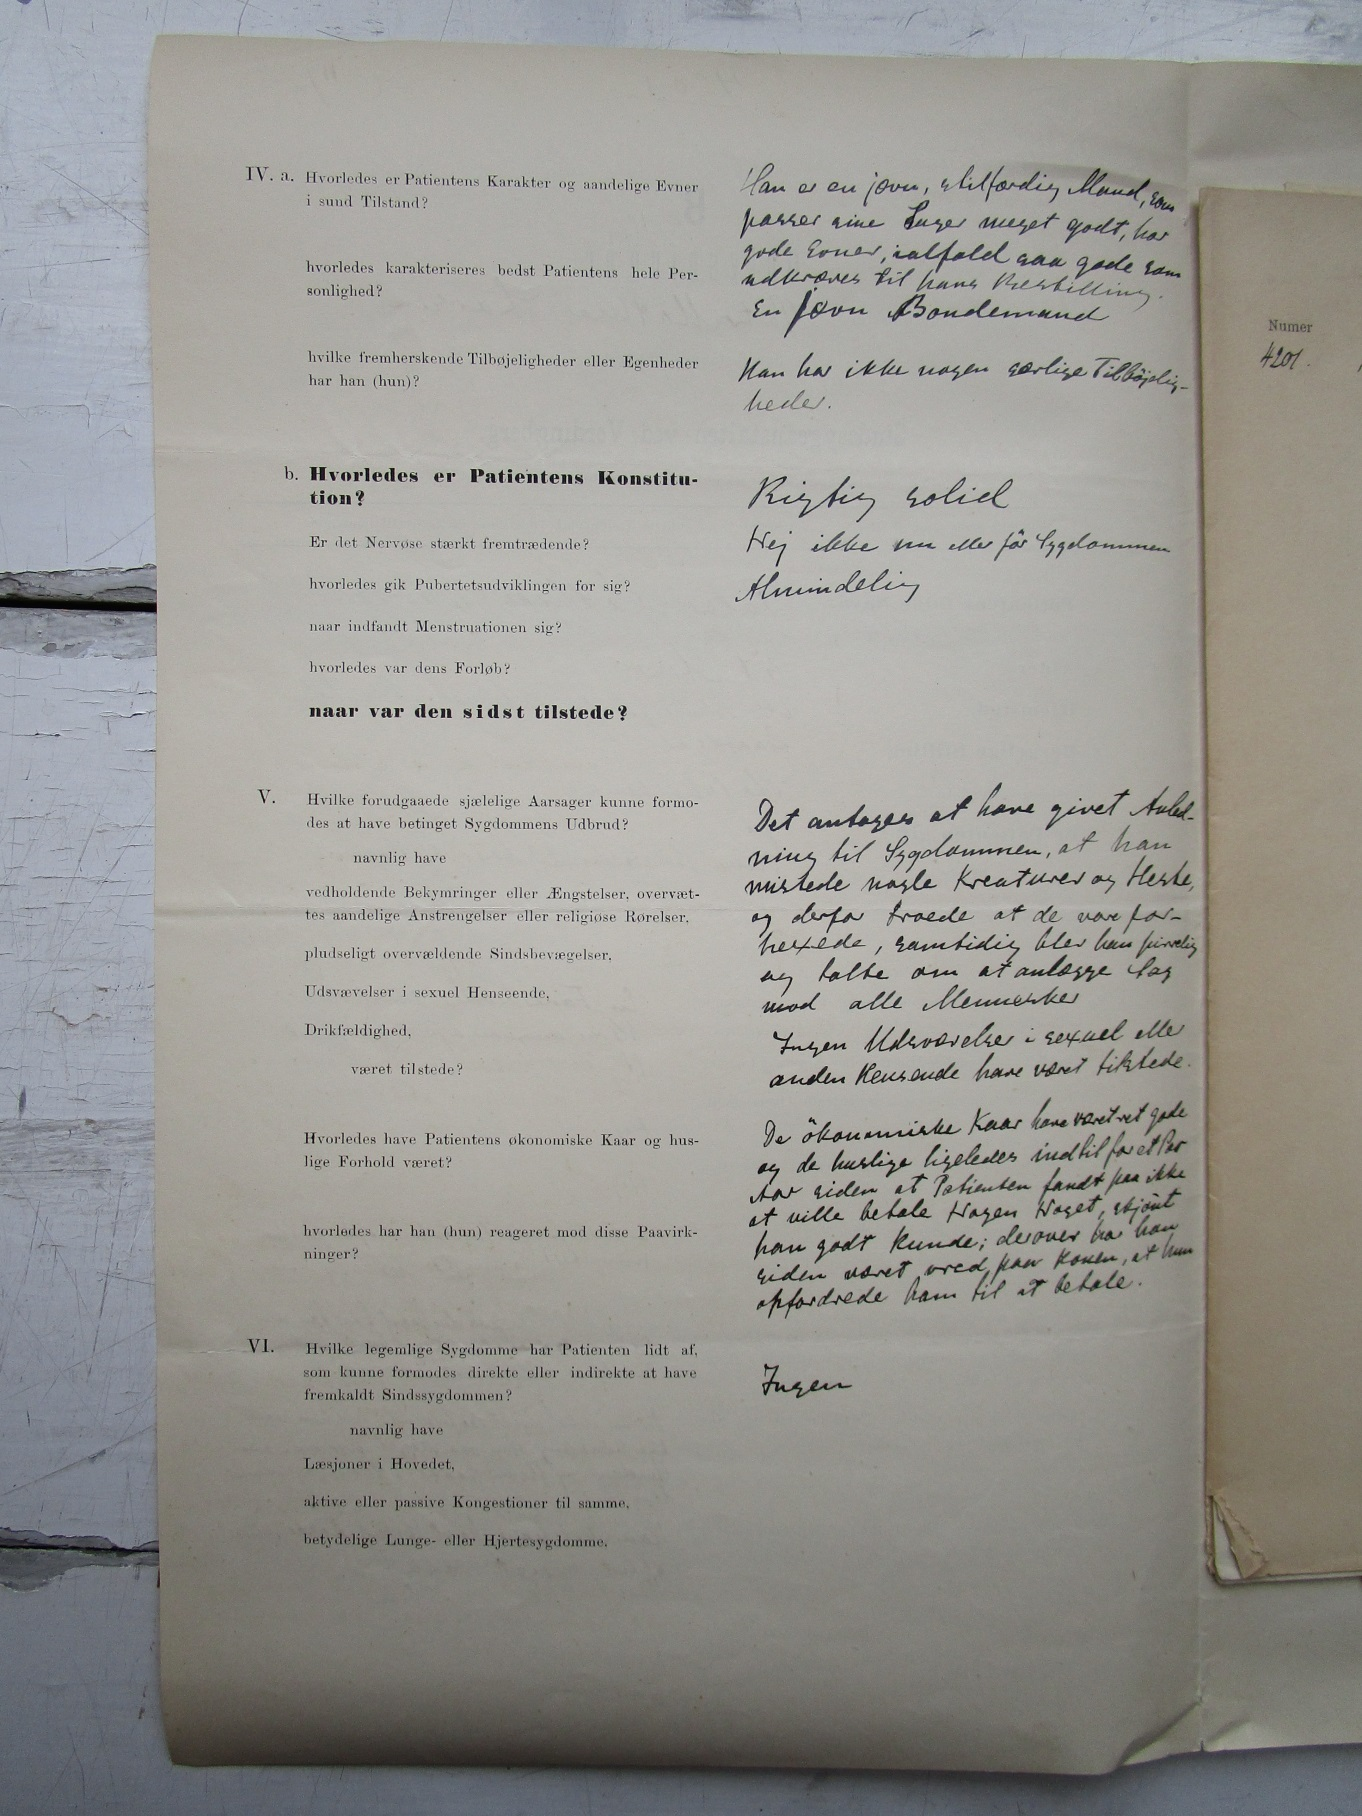 IV. a. Hvorledes er Patientens Karakter og aandelige Evner
i sund Tilstand?
Han er en jævn, stilfærdig Mand, som
passer sine Sager meget godt, har
gode Evner, ialfald saa gode som
udkræves til hans Bestilling.
hvorledes karakteriseres bedst Patientens hele Per-
sonlighed?
En jævn Bondemand
hvilke fremherskende Tilbøjeligheder eller Egenheder
har han (hun)?
Han har ikke nogen særlige Tilböjelig-
heder.
b. Hvorledes er Patientens Konstitu-
tion?
Rigtig solid
Er det Nervøse stærkt fremtrædende?
Nej ikke nu eller för Sygdommen
hvorledes gik Pubertetsudviklingen for sig?
Almindelig
naar indfandt Menstruationen sig?
hvorledes var dens Forløb?
naar var den sidst tilstede?
V. Hvilke forudgaaede sjælelige Aarsager kunne formo-
des at have betinget Sygdommens Udbrud?
navnlig have
vedholdende Bekymringer eller Ængstelser, overvæt-
tes aandelige Anstrengelser eller religiøse Rørelser,
pludseligt overvældende Sindsbevægelser,
Udsvævelser i sexuel Henseende,
Drikfældighed,
været tilstede?
Det antages at have givet Anled-
ning til Sygdommen, at han
mistede nogle Kreaturer og Heste,
og derfor troede at de vare for-
hexede, samtidig blev han pirrelig
og talte om at anlægge Sag
mod alle Mennesker
Ingen Udsvævelser i sexuel eller
anden Henseende have været tilstede.
Hvorledes have Patientens økonomiske Kaar og hus-
lige Forhold været?
hvorledes har han (hun) reageret mod disse Paavirk-
ninger?
De ökonomiske Kaar have været ret gode
og de huslige ligeledes indtil for et Par
Aar siden at Patienten fandt paa ikke
at ville betale Nogen Noget, skjönt
han godt kunde; derover har han
siden været vred paa Konen, at hun
opfordrede ham til at betale.
VI. Hvilke legemlige Sygdomme har Patienten lidt af,
som kunne formodes direkte eller indirekte at have
fremkaldt Sindssygdommen?
Ingen
navnlig have
Læsjoner i Hovedet,
aktive eller passive Kongestioner til samme,
betydelige Lunge- eller Hjertesygdomme.
Numer
4201.